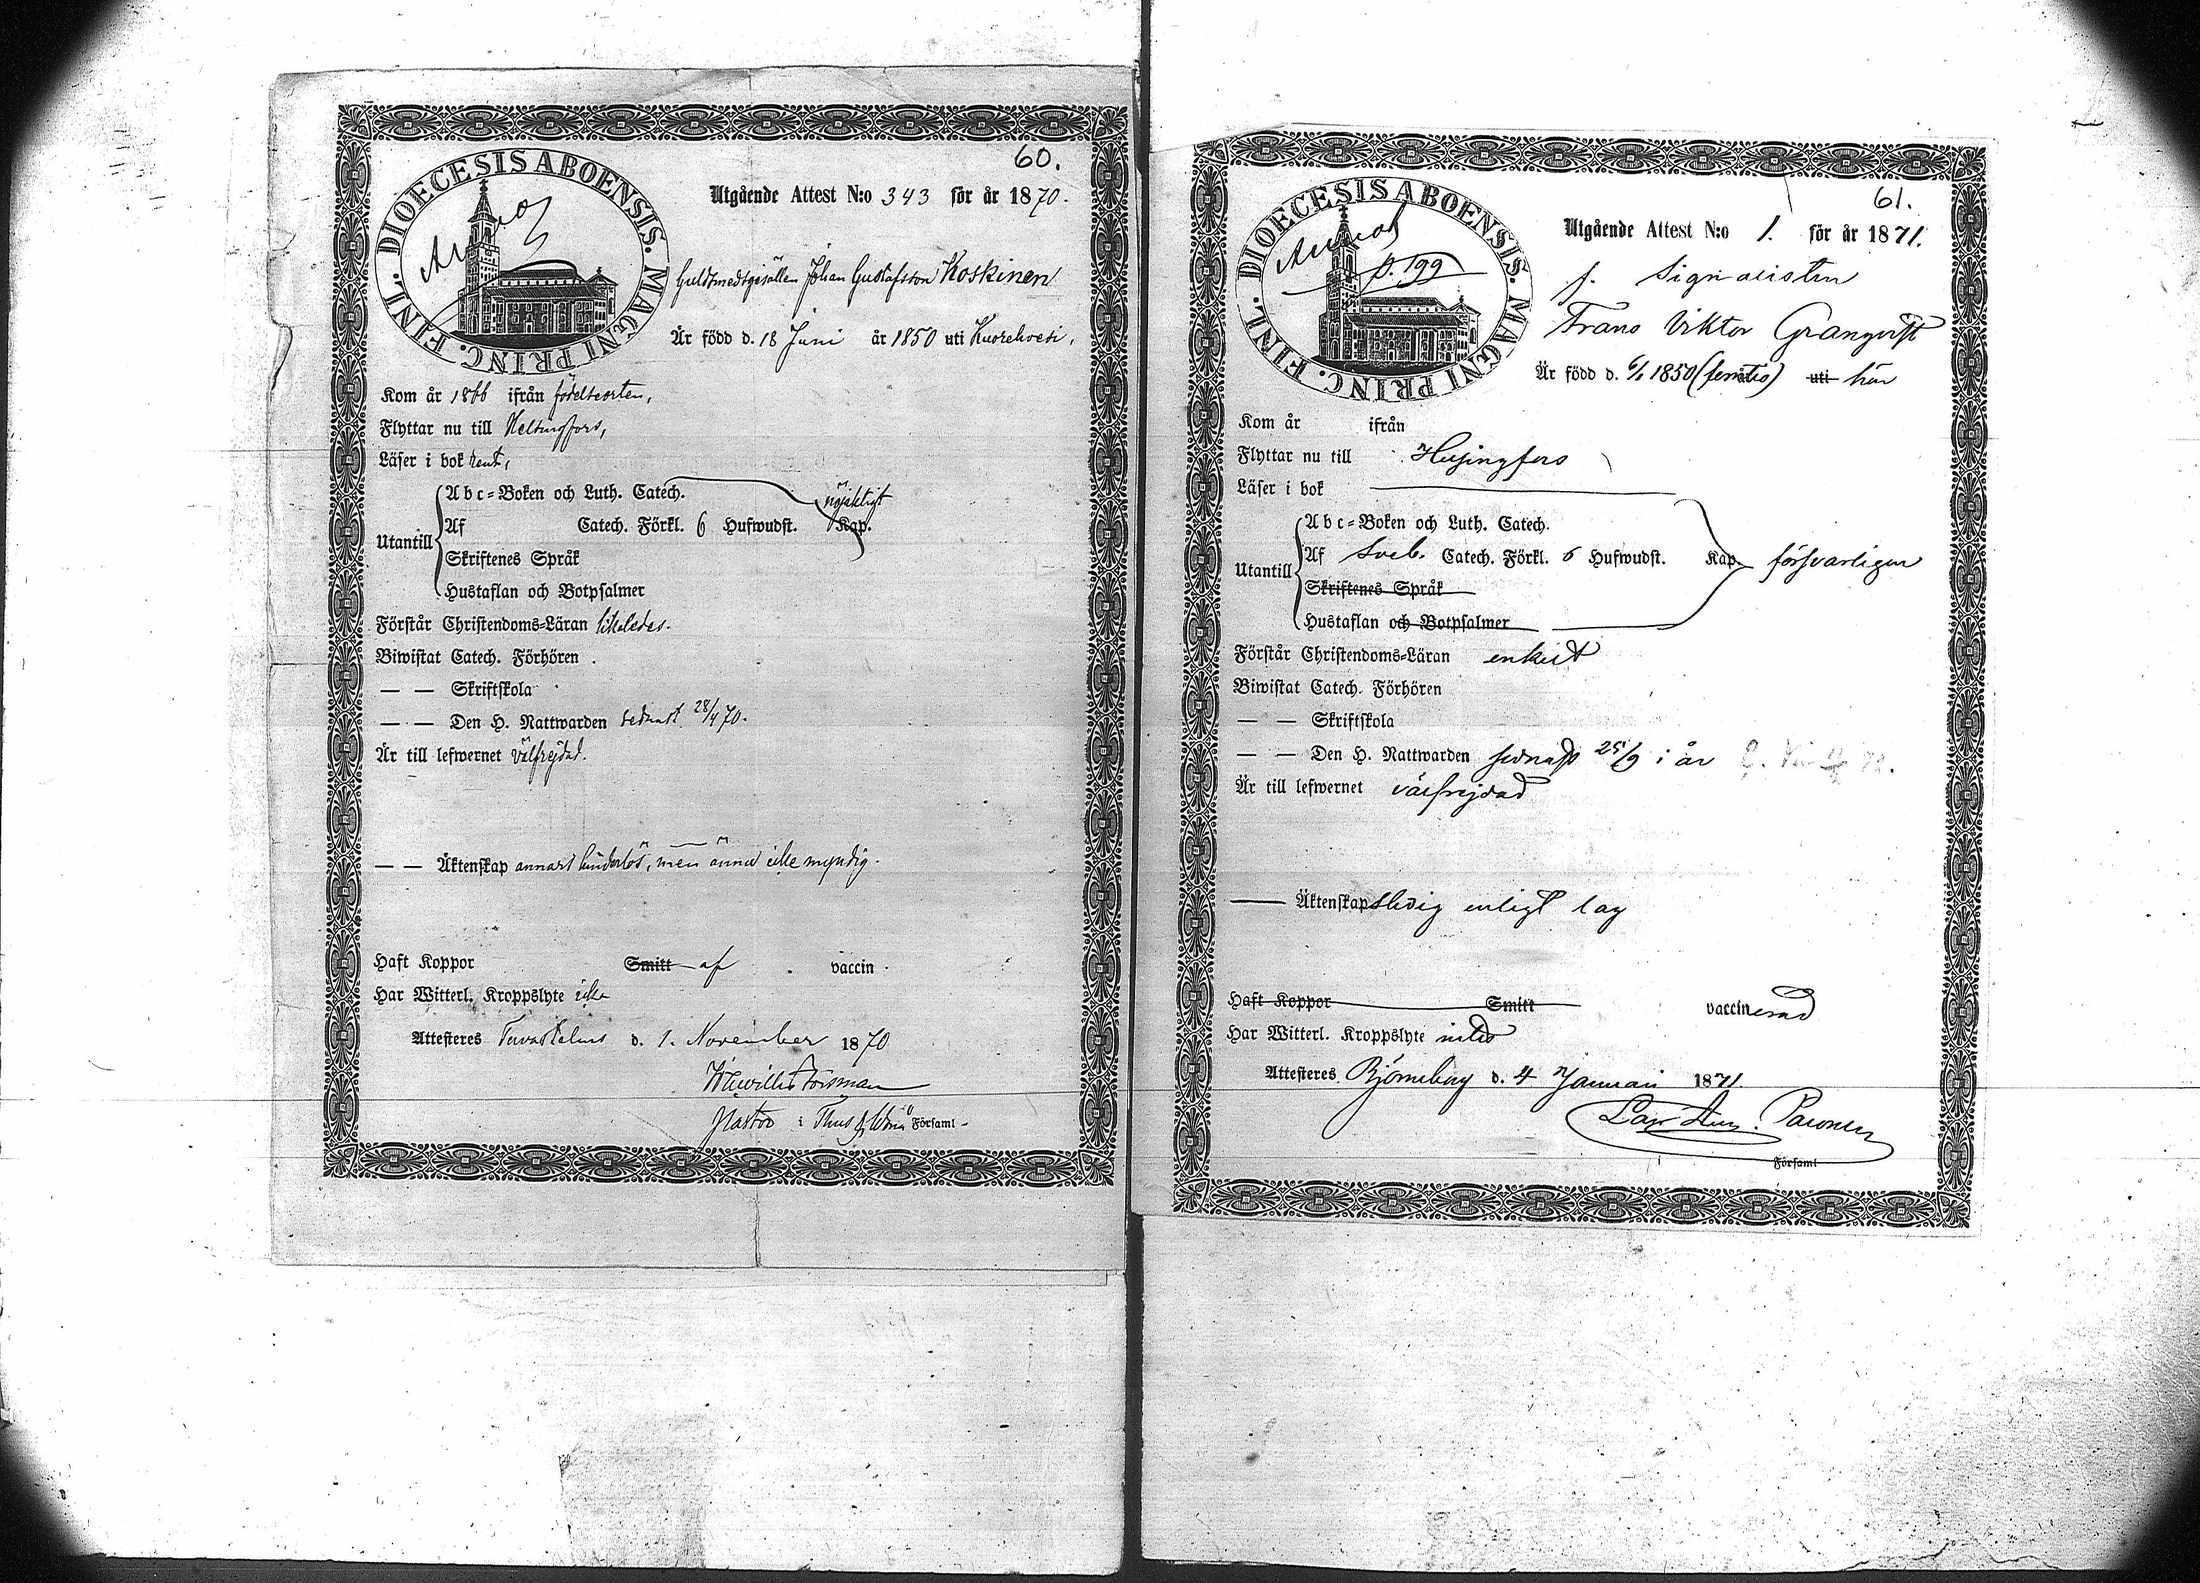 60.
DIOECESIS ABOENSIS. MAGNI PRINC. FINL.
Utgående Attest N:o 343 för år 1870.
Guldsmedsgesällen Johan Gustafsson Koskinen
Är född d. 18 Juni år 1850 uti Kuorehvesi,
Kom år 1866 ifrån födelseorten,
Flyttar nu till Helsingfors,
Läser i bok rent,
Abc-Boken och Luth. Catech.
nöjaktigt
Utantill
Af Catech. Förkl. 6 Hufwudst. Kap.
Skriftenes Språk
Hustaflan och Botpsalmer
Förstår Christendoms-Läran likaledes.
Biwistat Catech. Förhören
— — Skriftskola
— — Den H. Nattwarden sednast 28/4 70.
Är till lefwernet välfrejdad.
— — Äktenskap annars hinderlös, men ännu icke myndig.
Haft Koppor Smitt af vaccin
Har Witterl. Kroppslyte icke
Attesteres Tavastehus d. 1. November 1870
Forsman
Pastor i Församl
61.
DIOECESIS ABOENSIS. MAGNI PRINC. FINL.
p. 199
Utgående Attest N:o 1. för år 1871.
f. Signalisten
Frans Viktor Granqvist
Är född d. 6/1 1850 (femtio) uti här
Kom år ifrån
Flyttar nu till Helsingfors
Läser i bok
Abc-Boken och Luth. Catech.
Utantill
Af Sveb. Catech. Förkl. 6 Hufwudst. Kap. försvarligen
Skriftenes Språk
Hustaflan och Botpsalmer
Förstår Christendoms-Läran enkelt
Biwistat Catech. Förhören
— — Skriftskola
— — Den H. Nattwarden sednast 25/9 i år
Är till lefwernet välfrejdad
— Äktenskap ledig enligt lag
Haft Koppor Smitt vaccinerad
Har Witterl. Kroppslyte intet
Attesteres Björneborg d. 4 Januari 1871.
Församl